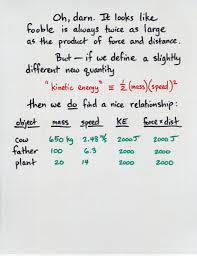 Oh, darn. It looks like
fooble is always twice as large
as the product of force and distance.
But — if we define a slightly
different new quantity
"kinetic energy" ≡ ½(mass)(speed)²
then we do find a nice relationship:
object mass speed KE force × dist
cow 650 kg 2.48 m/s 2000 J 2000 J
father 100 6.3 2000 2000
plant 20 14 2000 2000